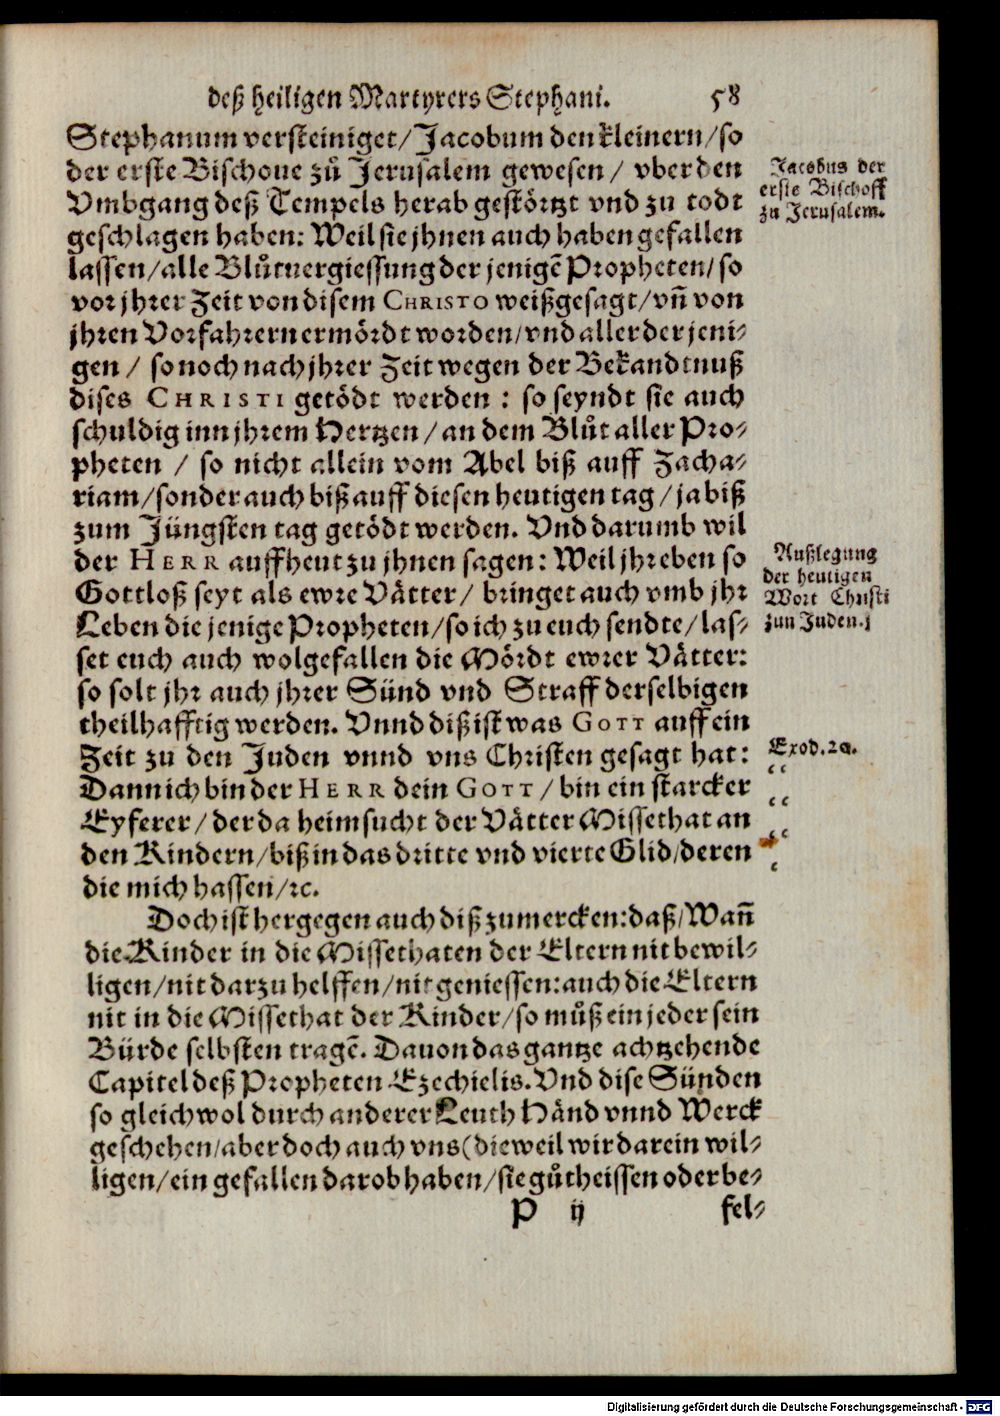 deß heiligen Martyrers Stephani. 58
Stephanum versteiniget/Jacobum den kleinern/so
der erste Bischoue zů Jerusalem gewesen/ vber den
Vmbgang deß Tempels herab gestörtzt vnd zu todt
geschlagen haben: Weil sie jhnen auch haben gefallen
lassen/alle Blůtuergiessung der jenigē Propheten/so
vor jhrer Zeit von disem CHRISTO weißgesagt/vñ von
jhren Vorfahrern ermördt worden/vnd aller der jeni-
gen / so noch nach jhrer Zeit wegen der Bekandtnuß
dises CHRISTI getödt werden : so seyndt sie auch
schuldig inn jhrem Hertzen/an dem Blůt aller Pro-
pheten / so nicht allein vom Abel biß auff Zacha-
riam/sonder auch biß auff diesen heutigen tag/ja biß
zum Jüngsten tag getödt werden. Vnd darumb wil
der HERR auff heut zu jhnen sagen: Weil jhr eben so
Gottloß seyt als ewre Vätter/ bringet auch vmb jhr
Leben die jenige Propheten/so ich zu euch sendte/las-
set euch auch wolgefallen die Mördt ewrer Vätter:
so solt jhr auch jhrer Sünd vnd Straff derselbigen
theilhafftig werden. Vnnd diß ist was GOTT auff ein
Zeit zu den Juden vnnd vns Christen gesagt hat:
Dann ich bin der HERR dein GOTT/bin ein starcker
Eyferer/der da heimsucht der Vätter Missethat an
den Kindern/biß in das dritte vnd vierte Glid/deren
die mich hassen/ꝛc.
Doch ist hergegen auch diß zumercken:daß/Wañ
die Kinder in die Missethaten der Eltern nit bewil-
ligen/nit darzu helffen/nit geniessen:auch die Eltern
nit in die Missethat der Kinder/so můß ein jeder sein
Bürde selbsten tragē. Dauon das gantze achtzehende
Capitel deß Propheten Ezechielis. Vnd dise Sünden
so gleichwol durch anderer Leuth Händ vnnd Werck
geschehen/aber doch auch vns(dieweil wir darein wil-
ligen/ein gefallen darob haben/sie gůtheissen oder be-
P ij fel-
Jacobus der
erste Bischoff
zu Jerusalem.
Außlegung
der heutigen
Wort Christi
zun Juden.
Exod.20.
Digitalisierung gefördert durch die Deutsche Forschungsgemeinschaft - DFG